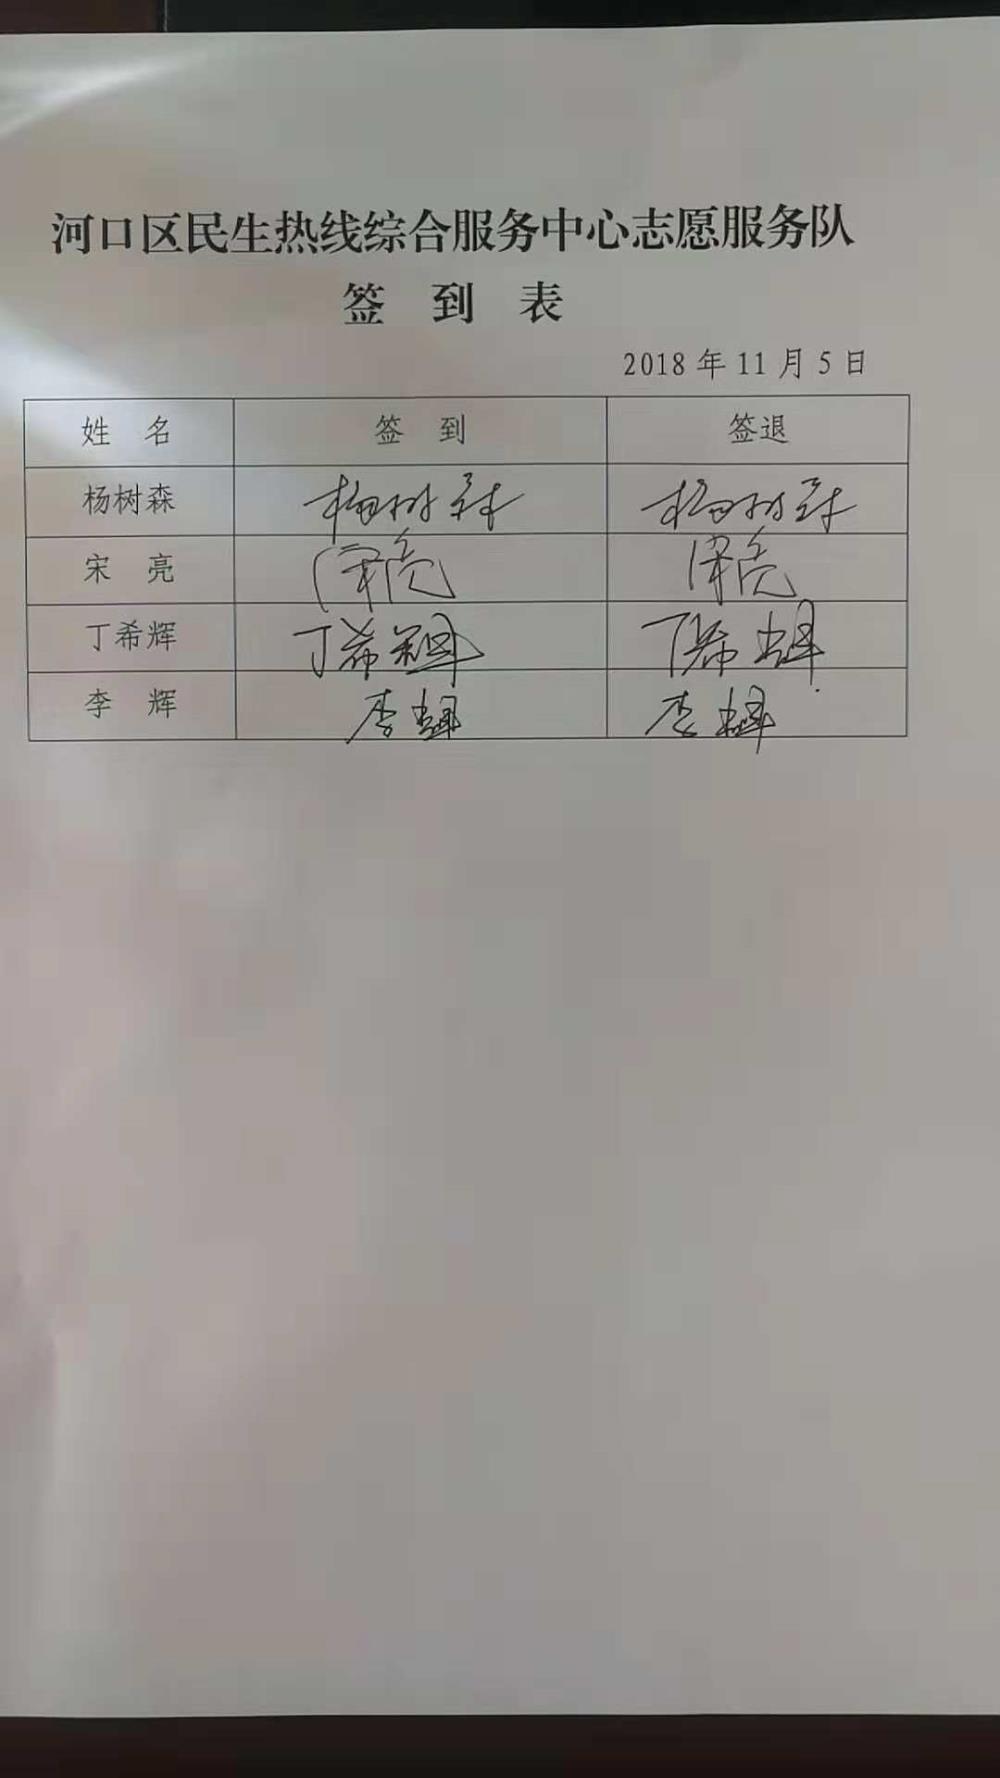 河口区民生热线综合服务中心志愿服务队
签 到 表
2018年11月5日
姓 名 签 到 签退
杨树森 杨树森 杨树森
宋 亮 宋亮 宋亮
丁希辉 丁希辉 丁希辉
李 辉 李辉 李辉